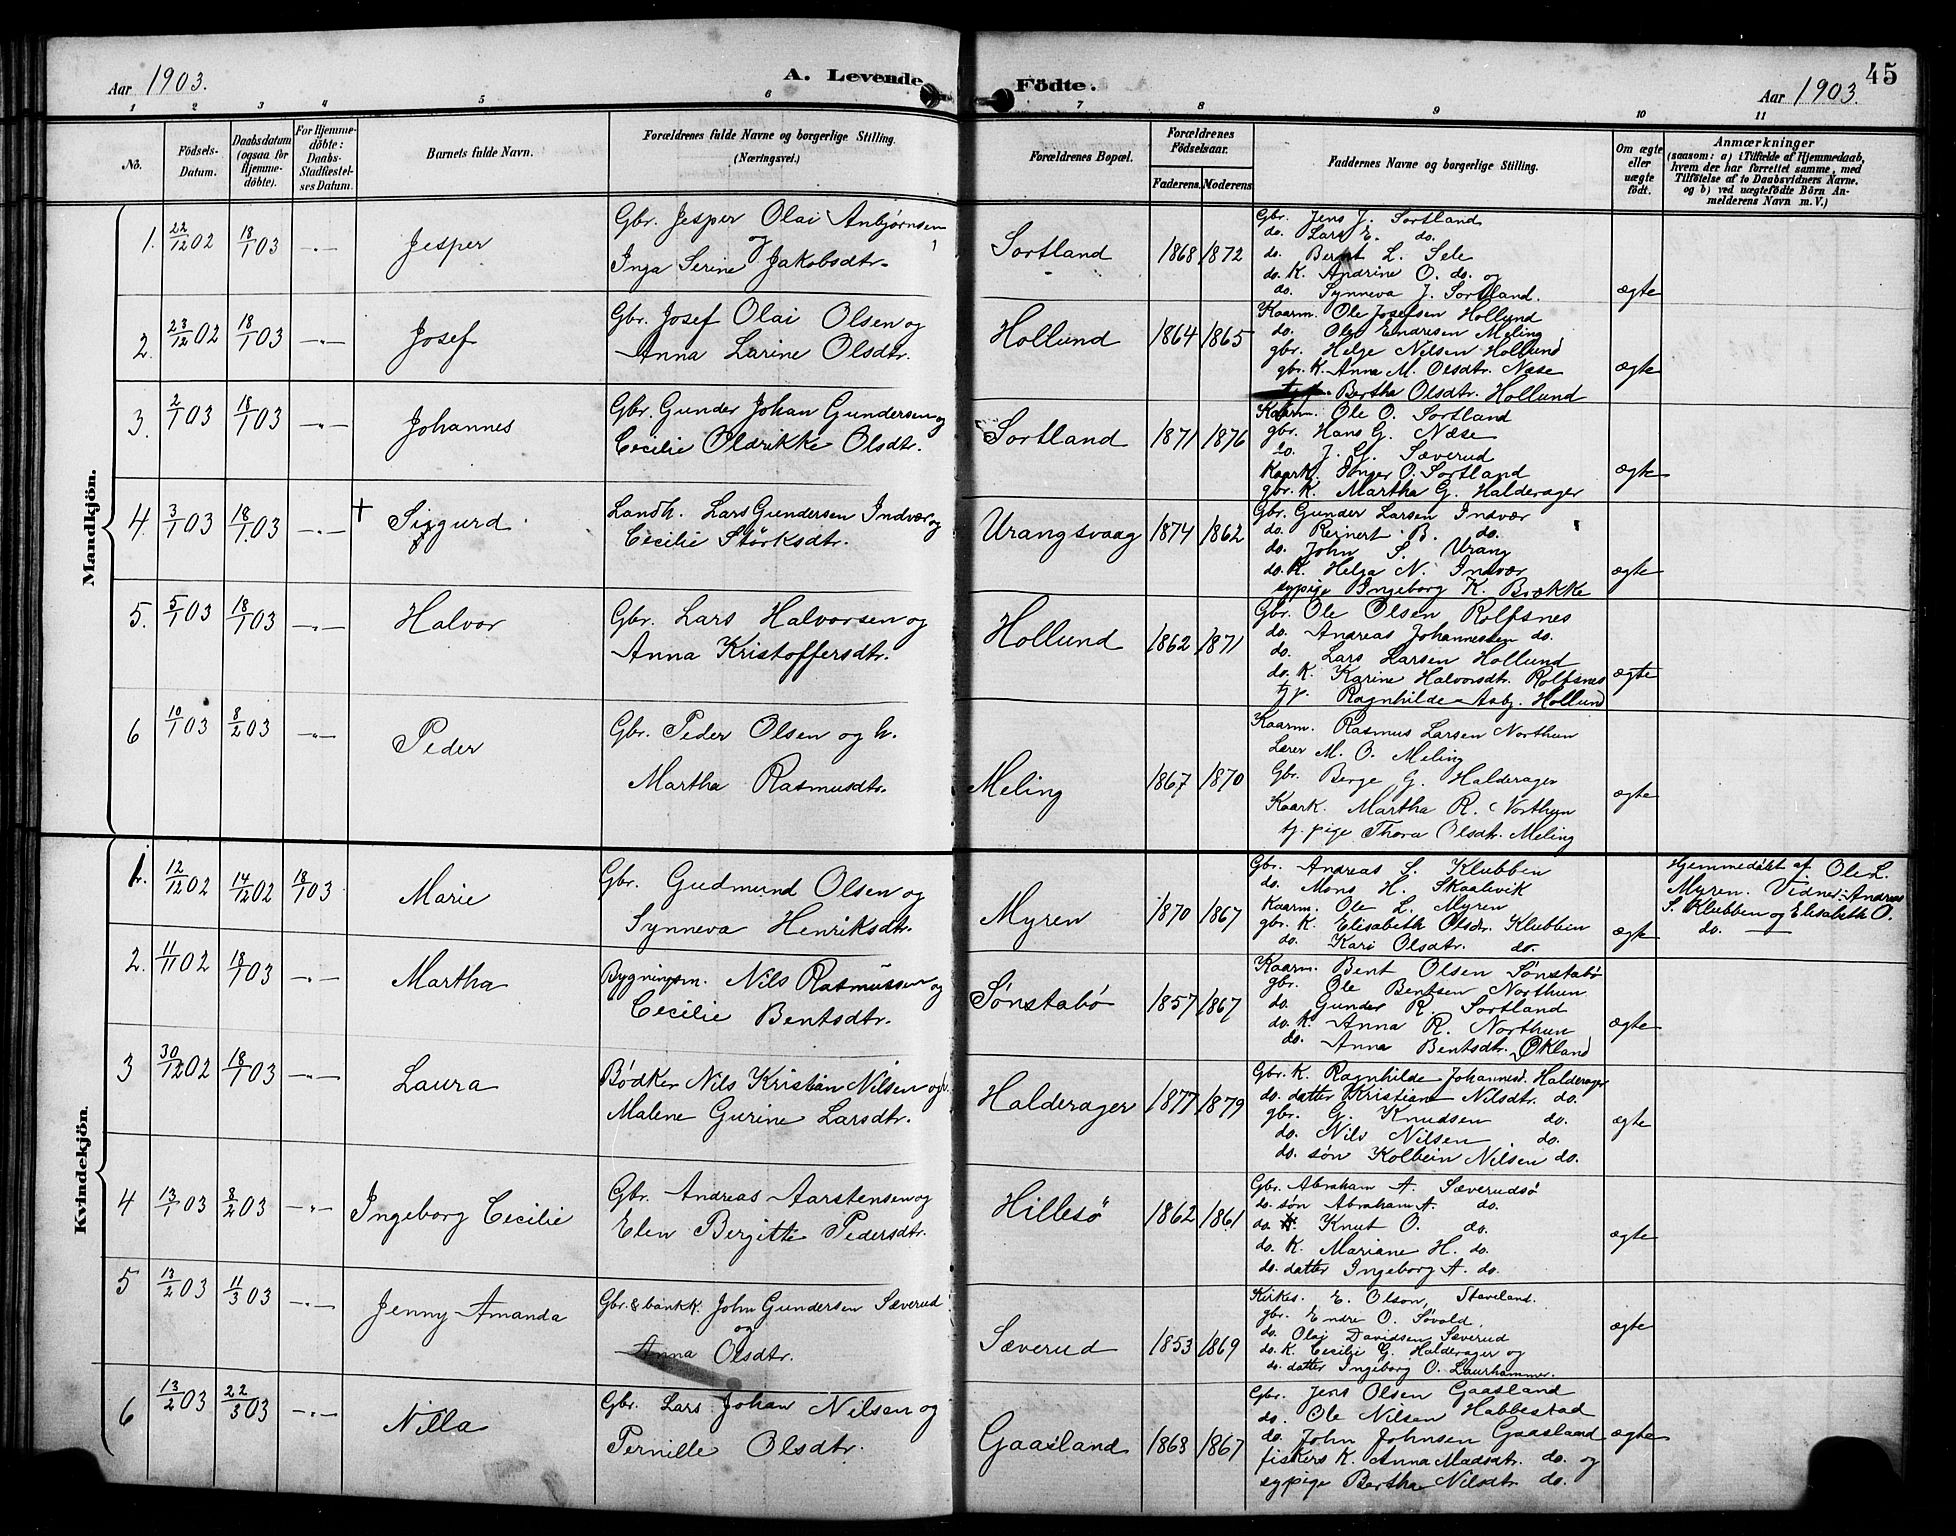 Aar 1903.
A. Levende
Födte.
Aar 1903.
45
1 2 3 4 5 6 7 8 9 10 11
No.
Födsels-
Datum.
Daabsdatum
(ogsaa for
Hjemme-
döbte).
For Hjemme-
döbte:
Daabs-
Stadfæstel-
ses Datum.
Barnets fulde Navn.
Forældrenes fulde Navne og borgerlige Stilling.
(Næringsvei.)
Forældrenes Bopæl.
Forældrenes
Födselsaar.
Faderens.
Moderens.
Faddernes Navne og borgerlige Stilling.
Om ægte
eller
uægte
födt.
Anmærkninger
(saasom: a) i Tilfælde af Hjemmedaab,
hvem der har forrettet samme, med
Tilföielse af to Daabsvidners Navne.
og b) ved uægtefödte Börn An-
melderens Navn m. V.)
Mandkjön.
1. 22/12 02 18/1 03 -"- Jesper
Gbr. Jesper Olai Anbjørnsen
og
Inga Serine Jakobsdtr.
Sortland 1868 1872
Gbr. Jens J. Sortland
do. Lars E. do.
do. Bernt L. Sele
do. K. Andrine O. do. og
do. Synneva J. Sortland.
ægte
2. 23/12 02 18/1 03 -"- Josef
Gbr. Josef Olai Olsen og
Anna Larine Olsdtr.
Hollund 1864 1865
Kaarm. Ole Josefsen Hollund
do. Ole Endresen Meling
gbr. Helge Nilsen Hollund
gbr. K. Anna M. Olsdtr. Næse
Bertha Olsdtr. Hollund
ægte
3. 2/1 03 18/1 03 -"- Johannes
Gbr. Gunder Johan Gundersen og
Cecilie Oldrikke Olsdtr.
Sortland 1871 1876
Kaarm. Ole O. Sortland
gbr. Hans G. Næse
do. J. G. Sæverud
Kaark. Inger O. Sortland
gbr. K. Martha G. Halderager
ægte
4. 3/1 03 18/1 03 -"- † Sigurd
Landh. Lars Gundersen Indvær og
Cecilie Størksdtr.
Urangsvaag 1874 1862
Gbr. Gunder Larsen Indvær
do. Reinert B. do.
do. John S. Urang
do. K. Helga N. Indvær
sypige Ingeborg K. Brække
ægte
5. 5/1 03 18/1 03 -"- Halvor
Gbr. Lars Halvorsen og
Anna Kristoffersdtr.
Hollund 1862 1871
Gbr. Ole Olsen Rolfsnes
do. Andreas Johannessen do.
do. Lars Larsen Hollund
do. K. Karine Halvorsdtr. Rolfsnes
tj. p. Ragnhilde Asbj. Hollund
ægte
6 10/1 03 8/2 03 -"- Peder
Gbr. Peder Olsen og h.
Martha Rasmusdtr.
Meling 1867 1870
Kaarm. Rasmus Larsen Northun
Lærer M. O. Meling
Gbr. Berge G. Halderager
Kaark. Martha R. Northun
tj. pige Thora Olsdtr. Meling
ægte
Kvindekjön.
1. 12/12 02 14/12 02 18/1 03 Marie
Gbr. Gudmund Olsen og
Synneva Henriksdtr.
Myren 1870 1867
Gbr. Andreas L. Klubben
do. Mons H. Skaalevik
Kaarm. Ole L. Myren
gbr. K. Elisabeth Olsdtr. Klubben
do. Kari Olsdtr. do.
ægte
Hjemmedøbt af Ole L.
Myren. Vidner: Andreas
S. Klubben og Elisabeth O.
do.
2. 11/11 02 18/1 03 -"- Martha
Bygningsm. Nils Rasmussen og
Cecilie Bentsdtr.
Sønstabø 1857 1867
Kaarm. Bent Olsen Sønstabø
gbr. Ole Bentsen Northun
do. Gunder R. Sortland
do. K. Anna R. Northun
do. Anna Bentsdtr. Økland
ægte
3 30/12 02 18/1 03 -"- Laura
Bødker Nils Kristian Nilsen og h.
Malene Gurine Larsdtr.
Halderager 1877 1879
Gbr. K. Ragnhilde Johannesd. Halderager
do. datter Kristiane Nilsdtr. do.
gbr. G. Knudsen do.
do. Nils Nilsen do.
do. søn Kolbein Nilsen do.
ægte
4 13/1 03 8/2 03 -"- Ingeborg Cecilie
Gbr. Andreas Aarstensen og
Elen Bergitte Pedersdtr.
Hillesø 1862 1861
Gbr. Abraham A. Sæverudsø
do. søn Abraham A. do.
do. Knut O. do.
do. K. Mariane H. do.
do. datter Ingeborg A. do.
ægte
5 13/2 03 11/3 03 -"- Jenny Amanda
Gbr. & bankk. John Gundersen Sæverud
og
Anna Olsdtr.
Sæverud 1853 1869
Kirkes. E. Olson, Staveland.
gbr. Endre O. Søvold.
do. Olai Davidsen Sæverud
do. K. Cecilie G. Halderager og
do. datter Ingeborg O. Laurhammer.
ægte
6 13/2 03 22/3 03 -"- Nilla
Gbr. Lars Johan Nilsen og
Pernille Olsdtr.
Gaasland 1868 1867
Gbr. Jens Olsen Gaasland
do. Ole Nilsen Habbestad
do. John Johnsen Gaasland
fiskers K. Anna Madsdtr. do. og
sypige Bertha Nilsdtr. do.
ægte